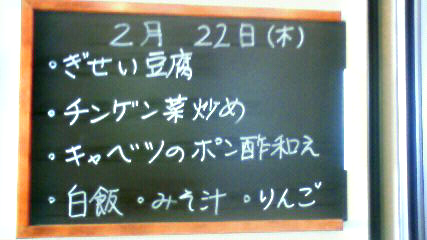 2月 22日(木)
・ぎせい豆腐
・チンゲン菜炒め
・キャベツのポン酢和え
・白飯 ・みそ汁 ・りんご